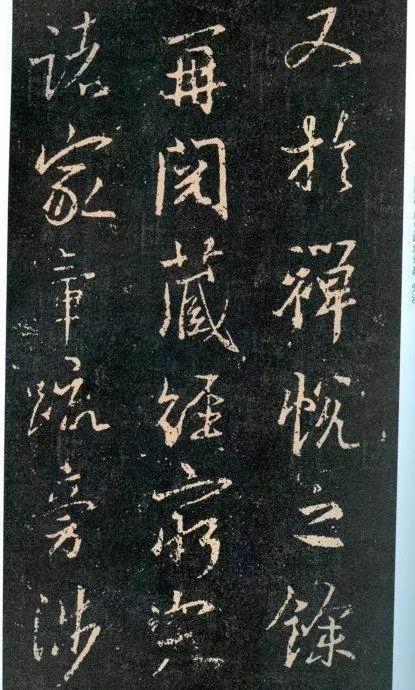 又於禪悅之餘
再閱藏經窮究
諸家章疏旁涉